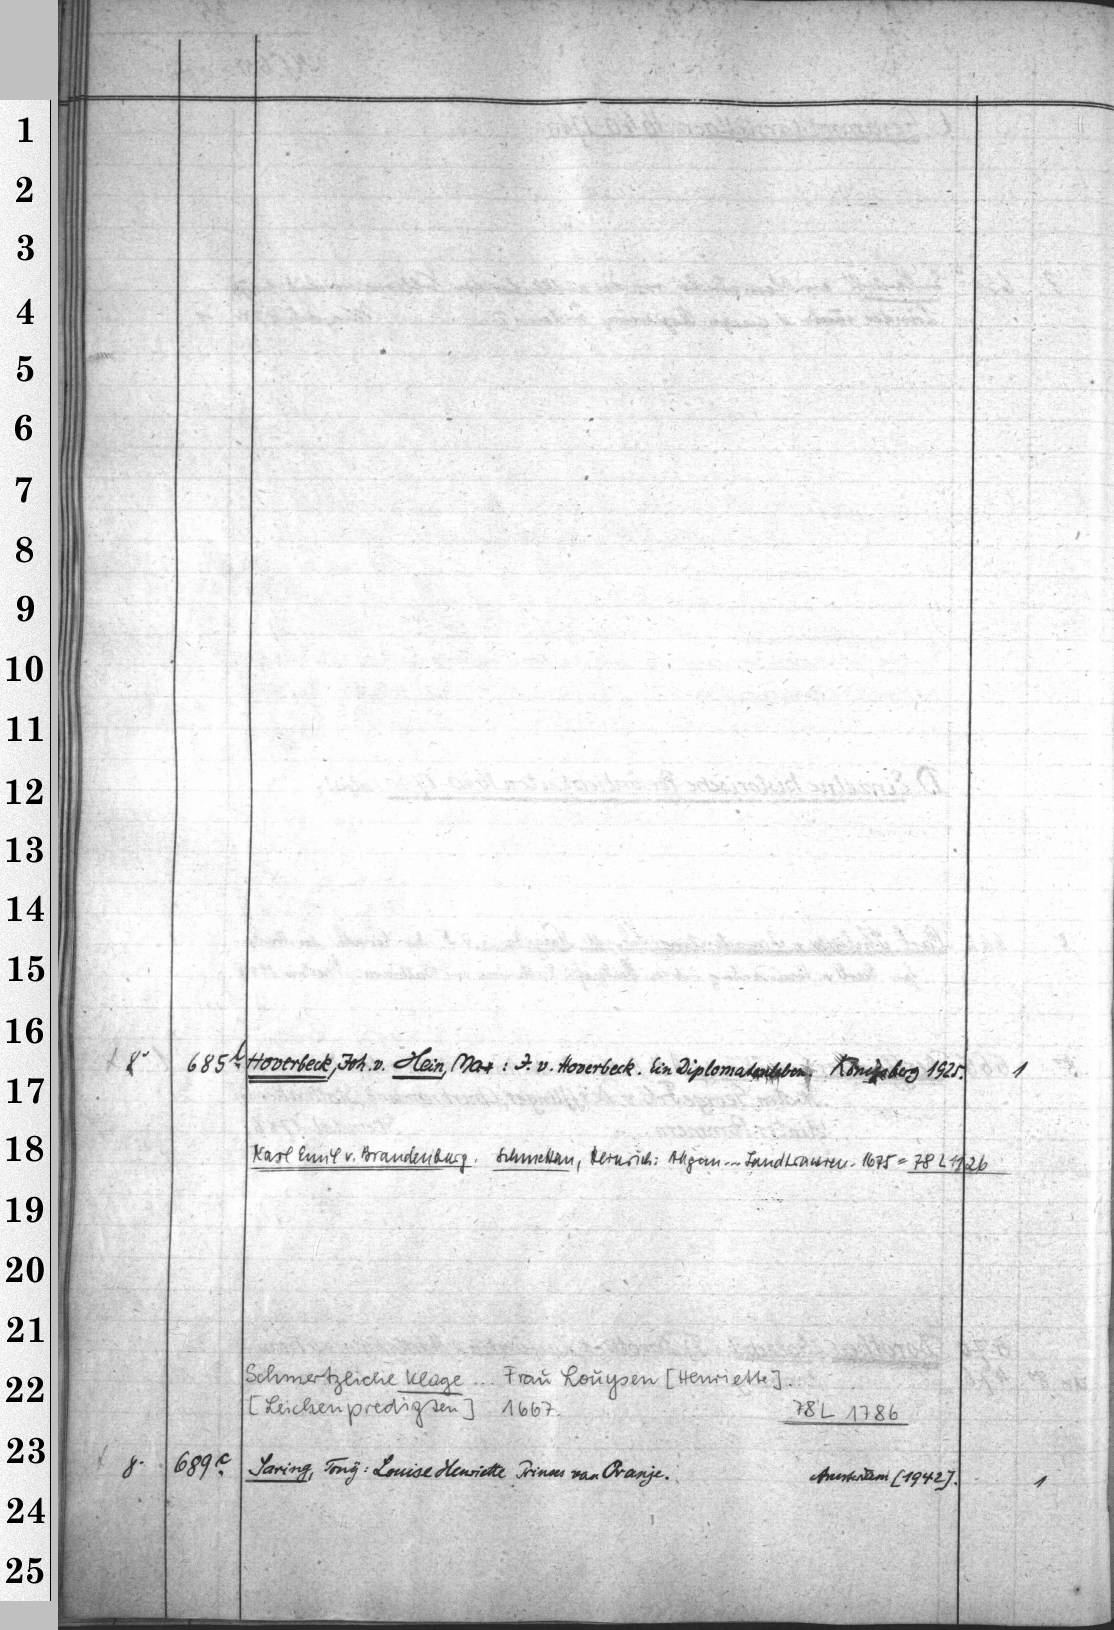 1
2
3
4
5
6
7
8
9
10
11
12
13
14
15
16
8° 685 b Hoverbeck, Joh. v. Hein, Max: J. v. Hoverbeck. Ein Diplomatenleben. Königsberg 1925. 1
17
18 Karl Emil v. Brandenburg. Schmettau, Heinrich: Allgem... Landtrauren. 1675 = 78 L 1126
19
20
21
22 Schmertzliche Klage ... Frau Louysen [Henriette].
[Leichenpredigten] 1667. 78 L 1786
23 8° 689 c. Saring, Tony: Louise Henriette Prinses van Oranje. Amsterdam [1942]. 1
24
25